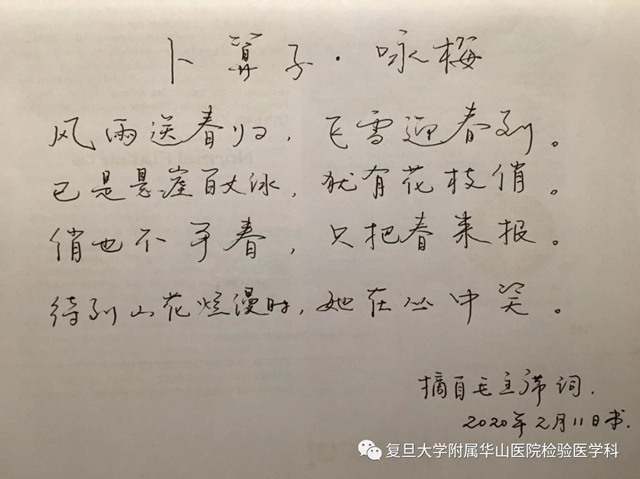 卜算子·咏梅
风雨送春归，飞雪迎春到。
已是悬崖百丈冰，犹有花枝俏。
俏也不争春，只把春来报。
待到山花烂漫时，她在丛中笑。
摘自毛主席词.
2020年2月11日书.
复旦大学附属华山医院检验医学科